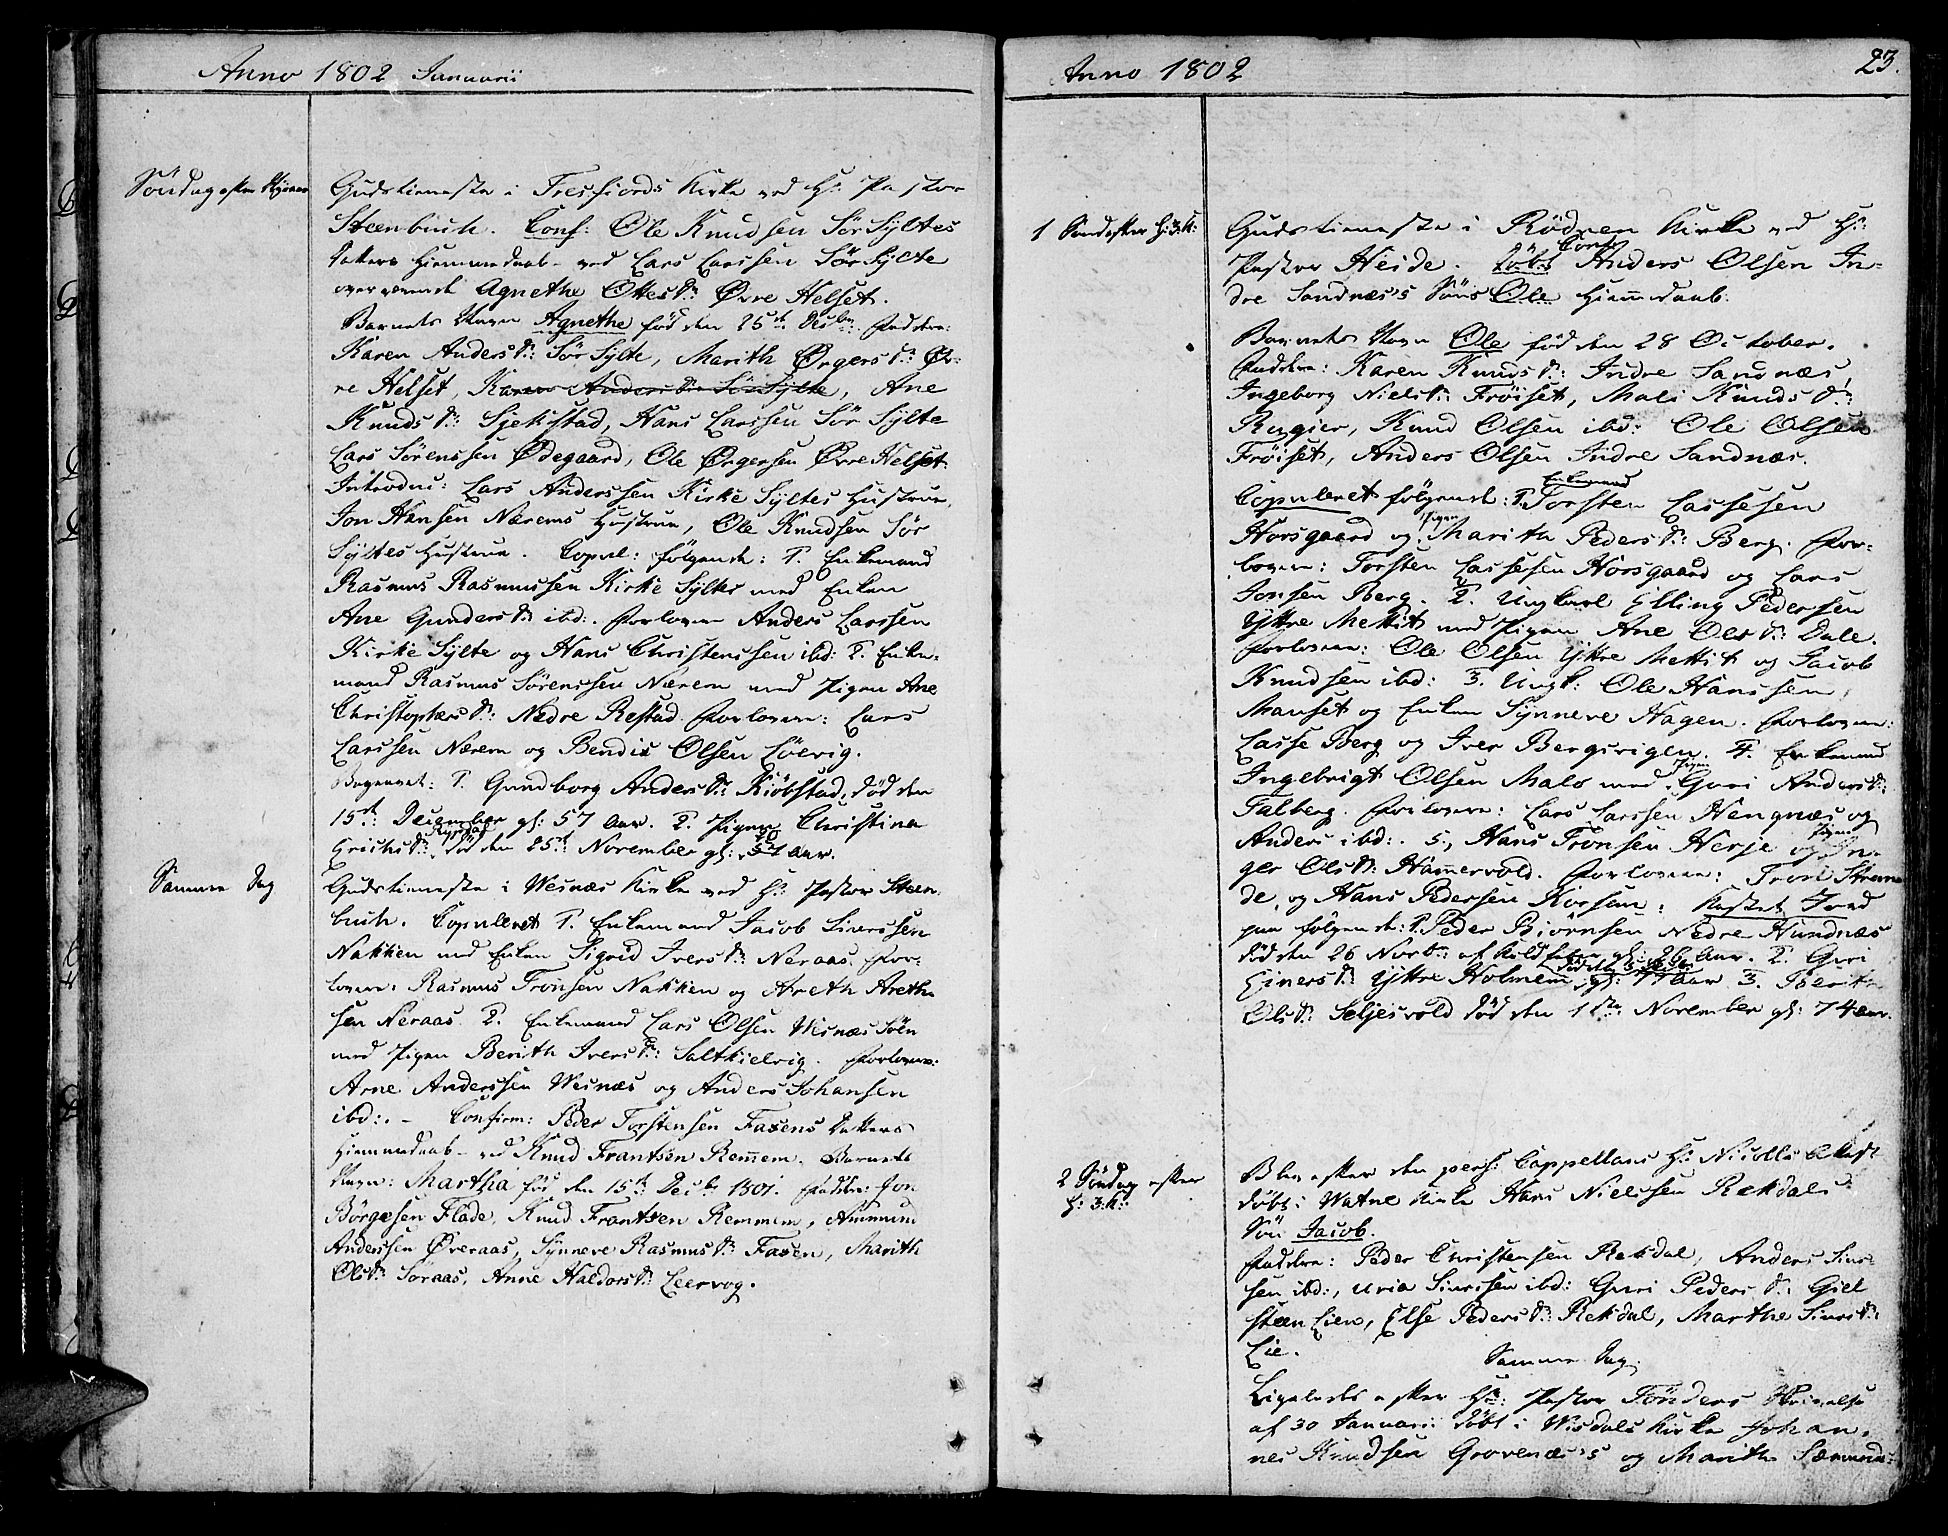 Anno 1802 Januarii
Søndag efter Nyeaar
Gudstieneste i Tresfiords Kirke ved Hr: Pastor
Steenbuch. Conf: Ole Knudsen Sør Syltes
Datters Hiemmedaab ved Lars Larssen Sør Sylte
overværende Agnethe Ottesdr: Øvre Helset.
Barnets Navn Agnethe fød den 25de Decbr: Faddere:
Karen Andersdr: Sør Sylte, Marith Ørgersdr: Øv-
re Helset, Karen Andersdr: Sør Sylte, Ane
Knudsdr: Sjekstad, Hans Larssen Sør Sylte
Lars Sørenssen Ødegaard, Ole Ørgersen Øvre Helset
Introduc: Lars Anderssen Kirke Syltes Hustrue,
Jon Hansen Nærems Hustrue, Ole Knudsen Sør
Syltes Hustrue. Copul: følgende: 1. Enkemand
Rasmus Rasmussen Kirke Syltes med Enken
Ane Gundersdr: ibd:. Forlovere Anders Larssen
Kirke Sylte og Hans Christenssen ibd: 2. Enke-
mand Rasmus Sørenssen Nærem med Pigen Ane
Christophersdr: Nedre Restad. Forlovere: Lars
Larssen Nærem og Bendix Olsen Løevig.
Begravet: 1. Gundborg Andersdr: Kiöbstad, død den
15de: December gl: 57 Aar. 2. Pigen Christina
Erichsdr: død den 25de November gl: 50 Aar.
Samme Dag
Gudstieneste i Wesnæs Kirke ved Hr: Pastor Steen-
buch. Copuleret 1. Enkemand Jacob Siurssen
Nakken med Enken Sigrid Iversdr: Neraas. For-
lovere: Rasmus Tronsen Nakken og Areth Areth-
sen Neraas. 2. Enkemand Lars Olsen Wesnæs Söen
med Pigen Berith Iversdr: Saltkielvig. Forlovere:
Arne Anderssen Wesnæs og Anders Johansen
ibd:. - Confirm: Peder Torstensen Faxens Datters
Hiemmedaab ved Knud Frantsen Remmem. Barnets
Navn: Martha fød den 15de Decbr 1801. Faddere: Jon
Börgesen Flade, Knud Frantzen Remmem, Ammund
Anderssen Øveraas, Synneve Rasmusdr: Faxen, Marith
Olsdr: Søraas, Anne Haldorsdr: Leervog.
Anno 1802
23.
1 Sönd efter H: 3. K:
Gudstieneste i Rödven Kirke ved Hr:
Conf:
Pastor Heide. Döbt Anders Olsen In-
dre Sandnæs's Söns Ole Hiemmedaab.
Barnets Navn Ole fød den 28 October.
Faddere: Karen Knudsdr: Indre Sandnæs,
Ingeborg Nielsdr: Fröiset, Mali Knudsdr:
Rugier, Knud Olsen ibd: Ole Olsen
Fröiset, Anders Olsen Indre Sandnæs.
Enkemand
Copuleret følgende: 1. Torsten Lassesen
Pigen
Horsgaard og Marith Pedersdr: Berg. For-
lovere: Torsten Lassesen Horsgaard og Lars
Jonsen Berg. 2. Ungkarl Elling Pedersen
Yttre Mettit med Pigen Ane Olsdr: Dale.
Forlovere: Ole Olsen Yttre Mettit og Jacob
Knudsen ibd: 3. Ungk: Ole Hanssen
Manset og Enken Synneve Hagen. Forlovere:
Lasse Berg og Iver Bergsvigen. 4. Enkemand
Pigen
Ingebrigt Olsen Malo med Guri Andersdr:
Talberg. Forlovere: Lars Larssen Hengnæs og
Pigen
Anders ibd:. 5., Hans Tronsen Herje og In-
ger Olsdr: Hammervold. Forlovere: Tron Stran-
de, og Hans Pedersen Korsan: Kastet Jord
paa følgende: 1. Peder Biörnsen Nedre Hundnæs
död den 26 Novbr: af Koldfeber gl: 26 Aar. 2. Guri
Einersdr: Yttre Holmem gl: 77 Aar 3. Berit
Olsdr: Seljesvold död den 1ste: November gl: 74 aar.
2 Söndag efter
H: 3. K:
Blev efter den pers: Cappellans Hr: Nicolls Attest
döbt i Watne Kirke Hans Nielssen Rekdals
Sön Jacob.
Faddere: Peder Christensen Rekdal, Anders Siurs-
sen ibd:, Uria Siurssen ibd: Guri Pedersdr: Giel
steen Lien, Else Pedersdr: Rekdal, Marthe Siursdr:
Lie.
Samme Dag
Ligeledes efter Hr: Pastor Tönders Skrivelse
af 30 Januarii döbt i Wisdals Kirke Johan-
nes Knudsen Grovenæs's og Marith Sæmunds-